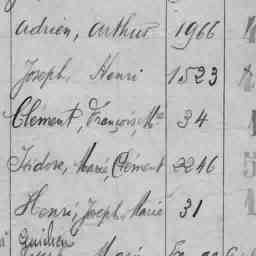 Adrien, Arthur 1966
Joseph, Henri 1523
Clément, Françoise, Mie 34
Isidore, Marie, Clément 2246
Henri, Joseph, Marie 31